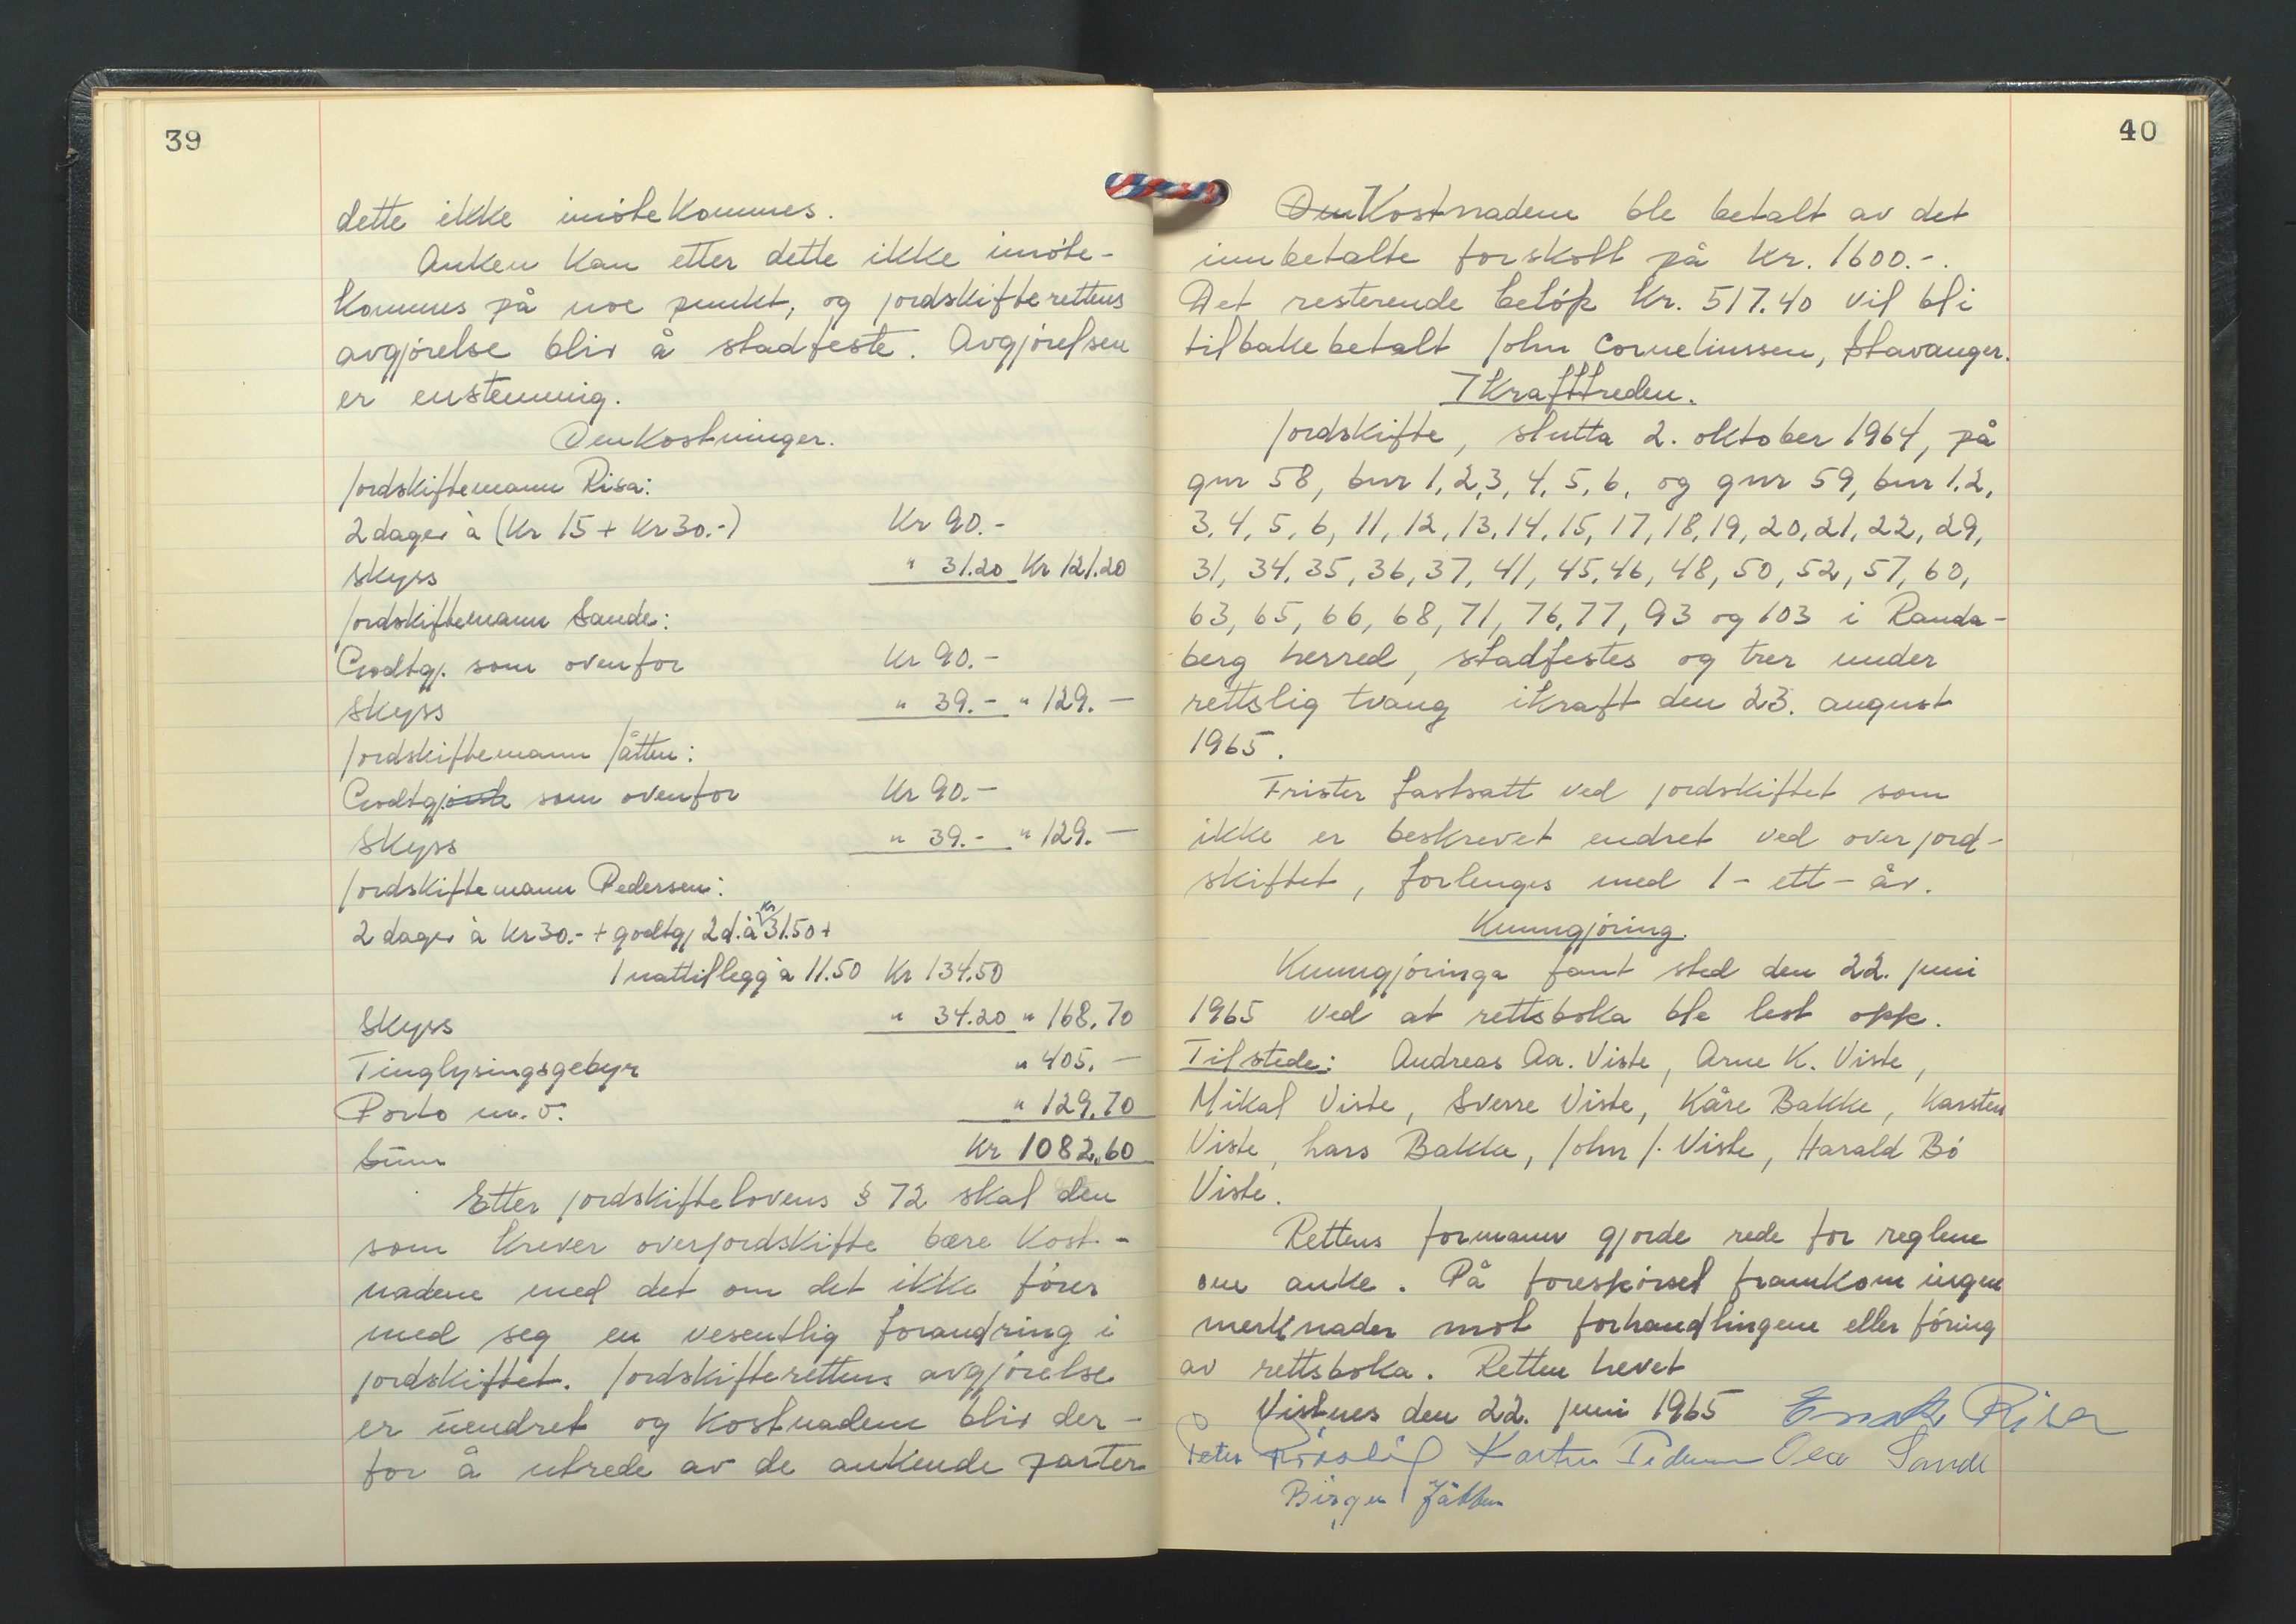 39
dette ikke imøtekommes.
Anken kan etter dette ikke imøte-
kommes på noe punkt, og jordskifterettens
avgjørelse blir å stadfeste. Avgjørelsen
er enstemmig.
Omkostninger.
Jordskiftemann Risa:
2 dager à (Kr 15 + Kr 30.-) Kr 90.-
Skyss " 31.20 Kr 121.20
Jordskiftemann Sande:
Godtgj. som ovenfor Kr 90.-
Skyss " 39.- " 129.-
Jordskiftemann Jåtten:
Godtgj som ovenfor Kr 90.-
Skyss " 39.- " 129.-
Jordskiftemann Pedersen:
2 dager à Kr 30.- + godtgj 2 d. à Kr 31.50 +
1 nattillegg à 11.50 Kr 134.50
Skyss " 34.20 " 168.70
Tinglysingsgebyr " 405.-
Porto m.v. " 129.70
Sum Kr 1082.60
Etter jordskiftelovens § 72 skal den
som krever overjordskifte bære kost-
nadene med det om det ikke fører
med seg en vesentlig forandring i
jordskiftet. Jordskifterettens avgjørelse
er uendret og kostnadene blir der-
for å utrede av de ankende parter
40
Omkostnadene ble betalt av det
innbetalte forskott på Kr. 1600.-.
Det resterende beløp Kr. 517.40 vil bli
tilbakebetalt John Corneliussen, Stavanger.
Ikrafttreden.
Jordskifte, slutta 2. oktober 1964, på
gnr 58, bnr 1, 2, 3, 4, 5, 6, og gnr 59, bnr 1, 2,
3, 4, 5, 6, 11, 12, 13, 14, 15, 17, 18, 19, 20, 21, 22, 29,
31, 34, 35, 36, 37, 41, 45, 46, 48, 50, 52, 57, 60,
63, 65, 66, 68, 71, 76, 77, 93 og 103 i Randa-
berg herred, stadfestes og trer under
rettslig tvang ikraft den 23. august
1965.
Frister fastsatt ved jordskiftet som
ikke er beskrevet endret ved overjord-
skiftet, forlenges med 1 - ett - år.
Kunngjøring.
Kunngjøringa fant sted den 22. juni
1965 ved at rettsboka ble lest opp.
Tilstede: Andreas Aa. Viste, Arne K. Viste,
Mikal Viste, Sverre Viste, Kåre Bakke, Karsten
Viste, Lars Bakke, John J. Viste, Harald Bø
Viste.
Rettens formann gjorde rede for reglene
om anke. På forespørsel framkom ingen
merknader mot forhandlingene eller føring
av rettsboka. Retten hevet
Vistnes den 22. juni 1965 Risa
Peter Karsten Pedersen Ola Sande
Birger Jåtten